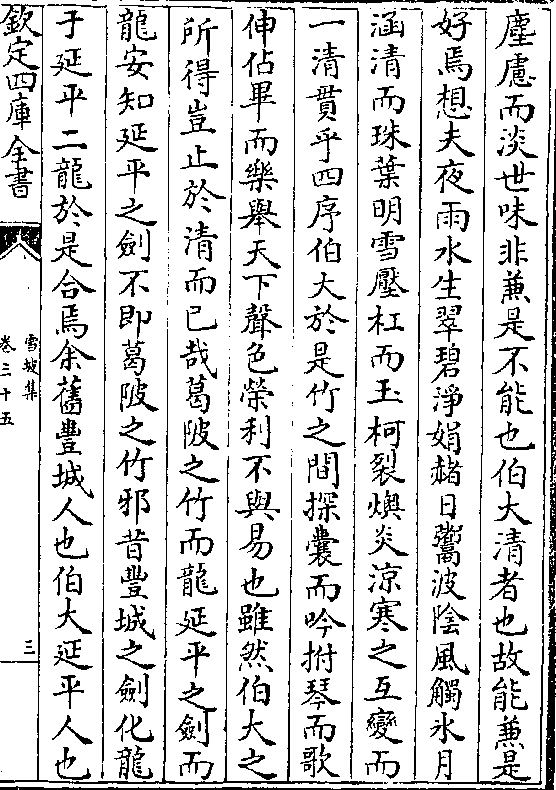 塵慮而淡世味非兼是不能也伯大清者也故能兼是
好焉想夫夜雨水生翠碧淨娟赭日鬻波陰風觸氷月
涵清而珠葉明雪壓杠而玉柯裂燠炎涼寒之互變而
一清貫乎四序伯大於是竹之間探囊而吟拊琴而歌
伸佔畢而樂舉天下聲色榮利不與易也雖然伯大之
所得豈止於清而已哉葛陂之竹而龍延平之劍而
龍安知延平之劍不即葛陂之竹邪昔豐城之劍化龍
于延平二龍於是合焉余舊豐城人也伯大延平人也
欽定四庫全書
雪坡集
卷三十五
三